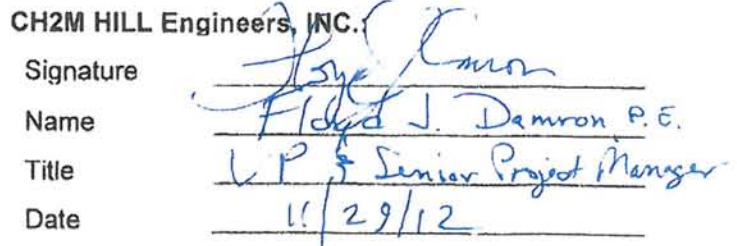 CH2M HILL Engineers, INC.:
Signature Floyd J Damron
Name Floyd J. Damron P.E.
Title VP & Senior Project Manager
Date 11/29/12